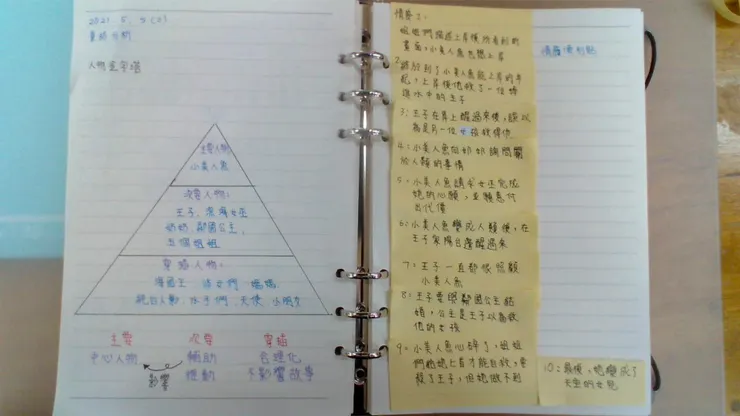 2021. 5. 5 (三)
童話分析
人物金字塔
主要人物:
小美人魚
次要人物:
王子、深海女巫
奶奶、鄰國公主、
五個姐姐
穿插人物:
海國王
天使、小朋友
主要 次要 穿插
中心人物 輔助 合理化
影響 推動 不影響故事
情節:
姐姐們描述上岸後所看到的
畫面,小美人魚也想上岸
2. 終於到了小美人魚能上岸的年
紀,上岸後他救了一位掉
進水中的王子
3. 王子在岸上醒過來後,誤以
為是另一位女孩救得他
4. 小美人魚向奶奶詢問關
於人類的事情
5. 小美人魚請求女巫完成
她的心願,並願意付
出代價
6. 小美人魚變成人類後,在
王子家陽台邊醒過來
7. 王子一直都很照顧
小美人魚
8. 王子要與鄰國公主結
婚,公主是王子以為救
他的女孩
9. 小美人魚心碎了,姐姐
殺了王子,但她做不到
10. 最後,她變成了
天空的女兒